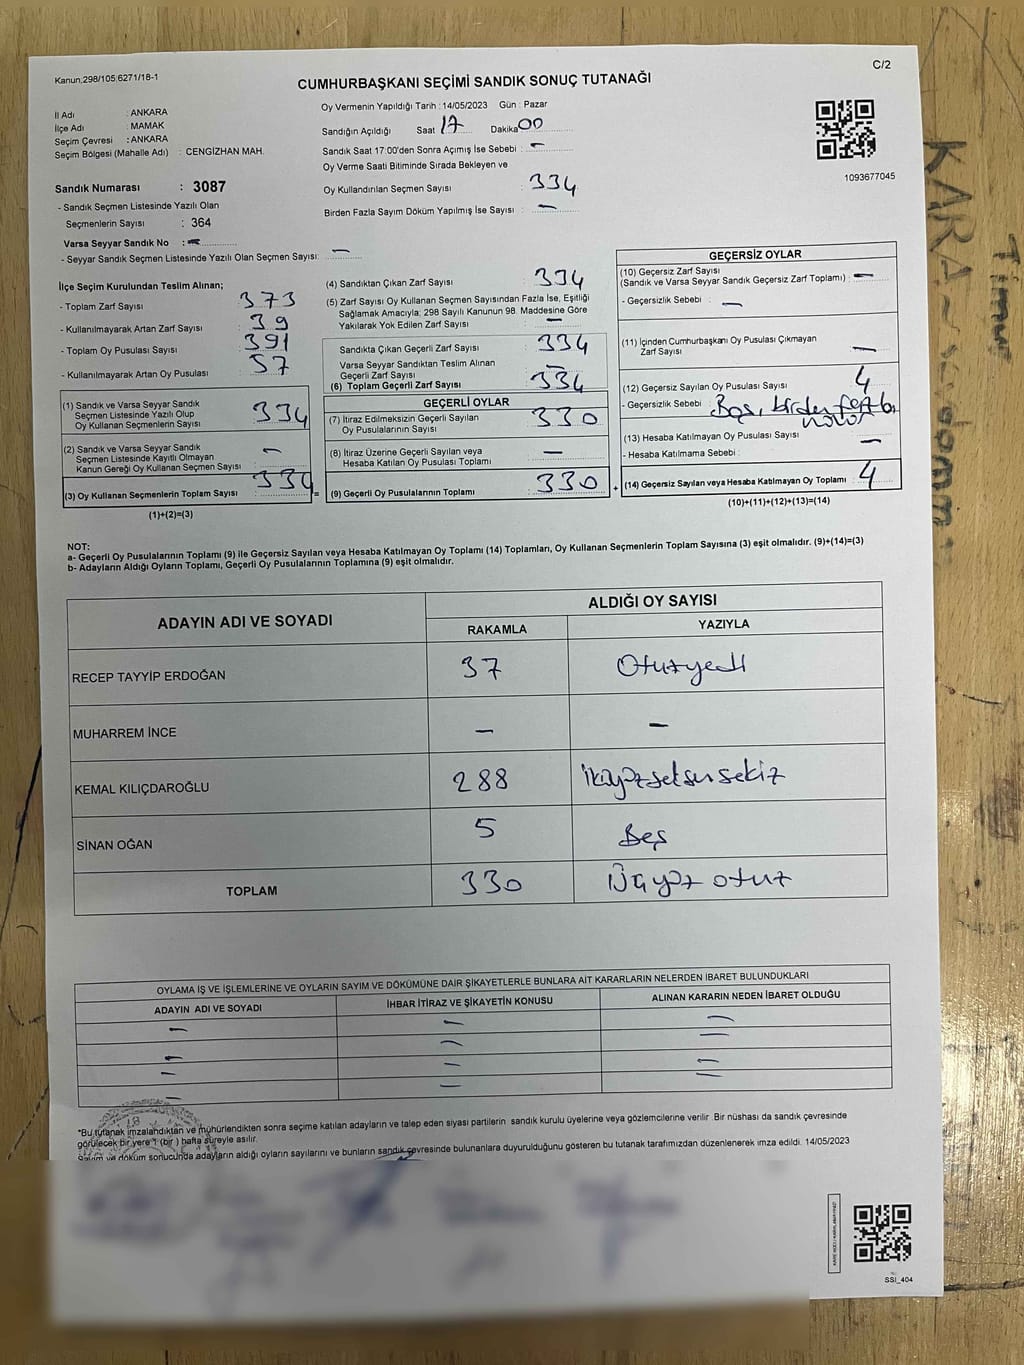 Kanun;298/105;6271/18-1
C/2
CUMHURBAŞKANI SEÇİMİ SANDIK SONUÇ TUTANAĞI
İl Adı : ANKARA
İlçe Adı : MAMAK
Seçim Çevresi : ANKARA
Seçim Bölgesi (Mahalle Adı) : CENGİZHAN MAH.
Oy Vermenin Yapıldığı Tarih : 14/05/2023 Gün : Pazar
Sandığın Açıldığı Saat 17 Dakika 00
Sandık Saat 17:00'den Sonra Açımış İse Sebebi : –
Oy Verme Saati Bitiminde Sırada Bekleyen ve
Oy Kullandırılan Seçmen Sayısı : 334
Birden Fazla Sayım Döküm Yapılmış İse Sayısı : –
1093677045
Sandık Numarası : 3087
- Sandık Seçmen Listesinde Yazılı Olan
Seçmenlerin Sayısı : 364
Varsa Seyyar Sandık No : –
- Seyyar Sandık Seçmen Listesinde Yazılı Olan Seçmen Sayısı: –
İlçe Seçim Kurulundan Teslim Alınan;
- Toplam Zarf Sayısı 373
- Kullanılmayarak Artan Zarf Sayısı 39
- Toplam Oy Pusulası Sayısı 391
- Kullanılmayarak Artan Oy Pusulası 57
(1) Sandık ve Varsa Seyyar Sandık
Seçmen Listesinde Yazılı Olup
Oy Kullanan Seçmenlerin Sayısı 334
(2) Sandık ve Varsa Seyyar Sandık
Seçmen Listesinde Kayıtlı Olmayan
Kanun Gereği Oy Kullanan Seçmen Sayısı –
(3) Oy Kullanan Seçmenlerin Toplam Sayısı 334 =
(1)+(2)=(3)
(4) Sandıktan Çıkan Zarf Sayısı 334
(5) Zarf Sayısı Oy Kullanan Seçmen Sayısından Fazla İse, Eşitliği
Sağlamak Amacıyla; 298 Sayılı Kanunun 98. Maddesine Göre
Yakılarak Yok Edilen Zarf Sayısı –
Sandıkta Çıkan Geçerli Zarf Sayısı 334
Varsa Seyyar Sandıktan Teslim Alınan
Geçerli Zarf Sayısı –
(6) Toplam Geçerli Zarf Sayısı 334
GEÇERLİ OYLAR
(7) İtiraz Edilmeksizin Geçerli Sayılan
Oy Pusulalarının Sayısı 330
(8) İtiraz Üzerine Geçerli Sayılan veya
Hesaba Katılan Oy Pusulası Toplamı –
(9) Geçerli Oy Pusulalarının Toplamı : 330 +
GEÇERSİZ OYLAR
(10) Geçersiz Zarf Sayısı
(Sandık ve Varsa Seyyar Sandık Geçersiz Zarf Toplamı) : –
- Geçersizlik Sebebi : –
(11) İçinden Cumhurbaşkanı Oy Pusulası Çıkmayan
Zarf Sayısı –
(12) Geçersiz Sayılan Oy Pusulası Sayısı 4
- Geçersizlik Sebebi : Boş, birden fazla
(13) Hesaba Katılmayan Oy Pusulası Sayısı –
- Hesaba Katılmama Sebebi :
(14) Geçersiz Sayılan veya Hesaba Katılmayan Oy Toplamı 4
(10)+(11)+(12)+(13)=(14)
NOT:
a- Geçerli Oy Pusulalarının Toplamı (9) ile Geçersiz Sayılan veya Hesaba Katılmayan Oy Toplamı (14) Toplamları, Oy Kullanan Seçmenlerin Toplam Sayısına (3) eşit olmalıdır. (9)+(14)=(3)
b- Adayların Aldığı Oyların Toplamı, Geçerli Oy Pusulalarının Toplamına (9) eşit olmalıdır.
ADAYIN ADI VE SOYADI
ALDIĞI OY SAYISI
RAKAMLA YAZIYLA
RECEP TAYYİP ERDOĞAN 37 Otuzyedi
MUHARREM İNCE – –
KEMAL KILIÇDAROĞLU 288 ikiyüzseksensekiz
SİNAN OĞAN 5 Beş
TOPLAM 330 Üçyüz otuz
OYLAMA İŞ VE İŞLEMLERİNE VE OYLARIN SAYIM VE DÖKÜMÜNE DAİR ŞİKAYETLERLE BUNLARA AİT KARARLARIN NELERDEN İBARET BULUNDUKLARI
ADAYIN ADI VE SOYADI İHBAR İTİRAZ VE ŞİKAYETİN KONUSU ALINAN KARARIN NEDEN İBARET OLDUĞU
– – –
– – –
– – –
– – –
*Bu tutanak imzalandıktan ve mühürlendikten sonra seçime katılan adayların ve talep eden siyasi partilerin sandık kurulu üyelerine veya gözlemcilerine verilir. Bir nüshası da sandık çevresinde
görülecek bir yere 1 (bir ) hafta süreyle asılır.
Sayım ve döküm sonucunda adayların aldığı oyların sayılarını ve bunların sandık çevresinde bulunanlara duyurulduğunu gösteren bu tutanak tarafımızdan düzenlenerek imza edildi. 14/05/2023
SSİ_404
KARA
Timur